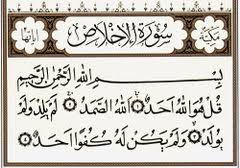 مكية سُورَةُ الإِخْلَاصِ آياتها
بِسْمِ اللَّهِ الرَّحْمَٰنِ الرَّحِيمِ
قُلْ هُوَ اللَّهُ أَحَدٌ ۝ اللَّهُ الصَّمَدُ ۝ لَمْ يَلِدْ وَلَمْ
يُولَدْ ۝ وَلَمْ يَكُنْ لَهُ كُفُوًا أَحَدٌ ۝